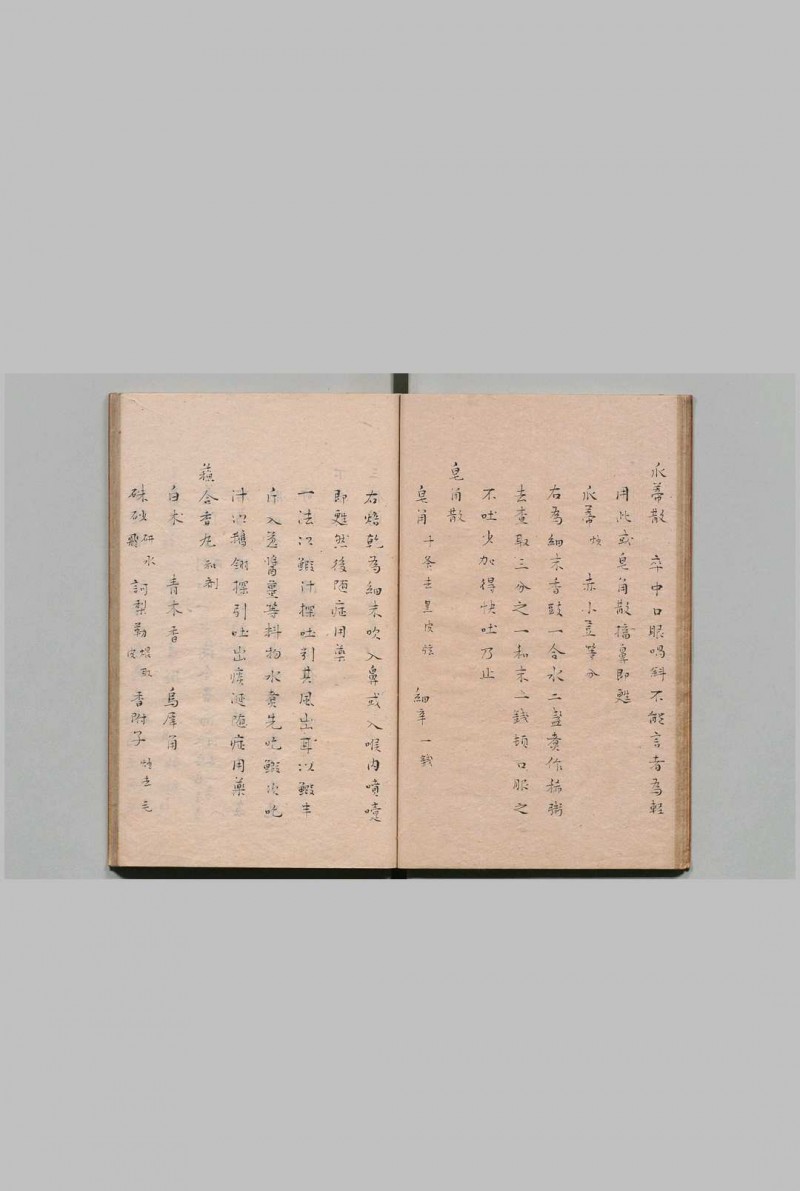 瓜蒂散 卒中口眼喎斜不能言者為輕
用此或皂角散搐鼻即甦
瓜蒂 炒 赤小荳等分
右為細末香豉一合水二盌煑作稀粥
去查取三分之一和末一錢頓口服之
不吐少加得快吐乃止
皂角散
皂角 十条去皂皮弦 細辛 一錢
右焙乾為細末吹入鼻或入喉内噴嚏
即甦然後随症用藥
一法以蝦汁探吐引其風出耳以蝦半
斤入葱醬薑等料物水煑先吃蝦次吃
汁次鵝翎探引吐出痰涎随症用藥
蘓合香丸和剤
白朮 青木香 烏犀角
硃砂 研水飛 訶梨勒 煨取皮 香附子 炒去毛